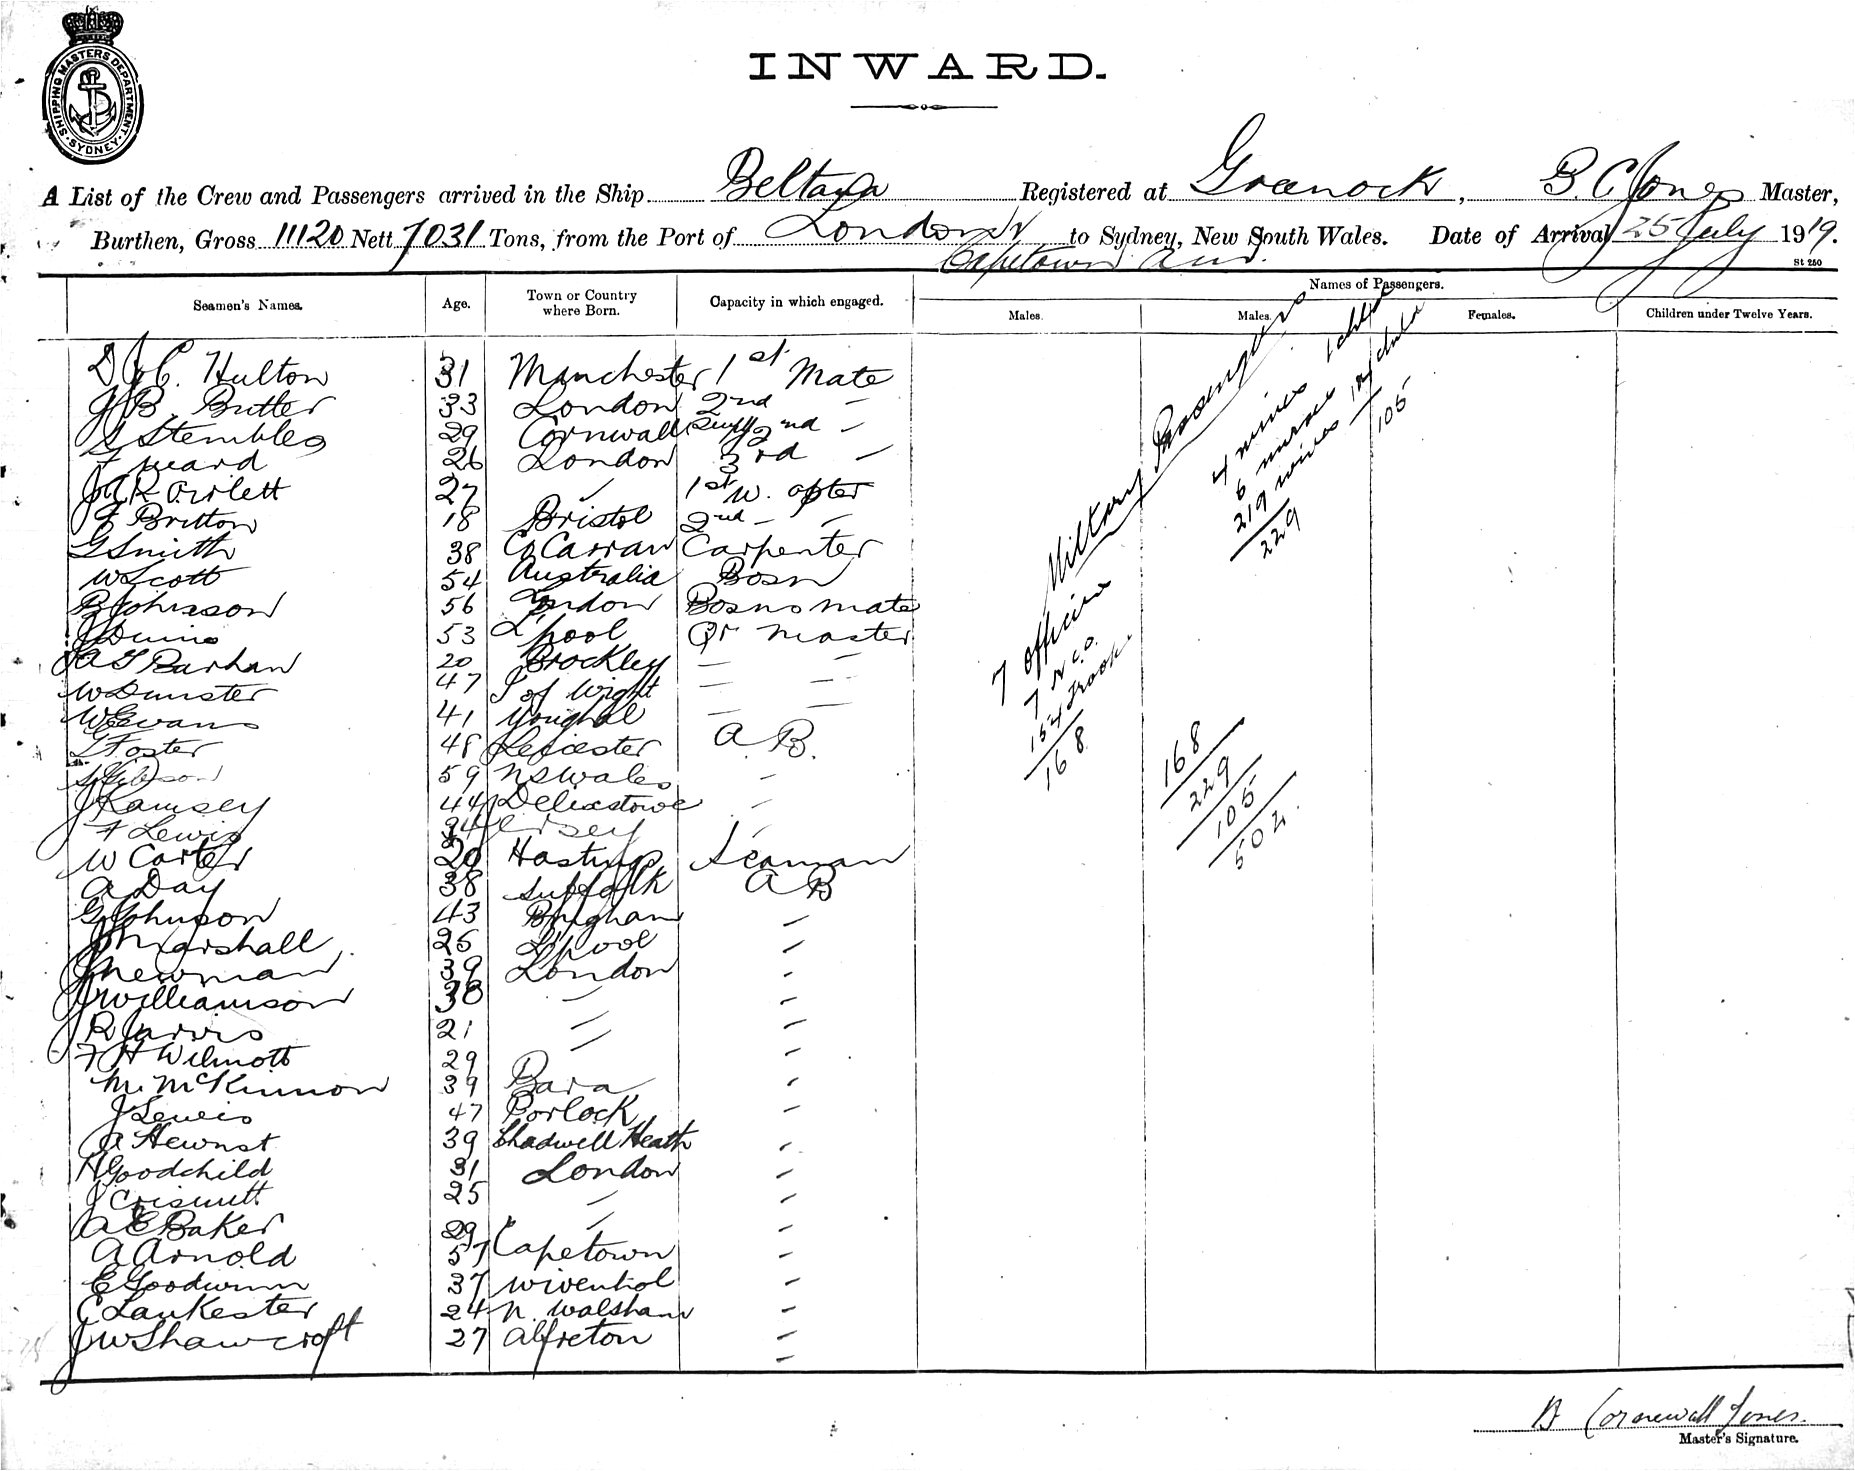 SHIPPING MASTERS DEPARTMENT. SYDNEY
INWARD.
A List of the Crew and Passengers arrived in the Ship Beltana Registered at Greenock, B. C. Jones Master,
Burthen, Gross 11120 Nett 7031 Tons, from the Port of London to Sydney, New South Wales. Date of Arrival 25 July 1919.
Capetown
St 250
Names of Passengers.
Seamen's Names. Age. Town or Country where Born. Capacity in which engaged. Males. Males. Females. Children under Twelve Years.
Hulton 31 Manchester 1st Mate
J B Butter 33 London 2nd "
Stembles 29 Cornwall 2nd "
26 London 3rd "
27 " 1st W. opter
Britton 18 Bristol 2nd " "
G Smith 38 Carpenter
W Scott 54 Australia Bosn
B Johnson 56 London Bosns mate
53 L'pool Qr Master
20 Brockley " "
W Dunster 47 I of Wight " "
W Evans 41 Youghal " "
G Foster 48 Leicester A B.
59 N S Wales "
J Ramsey 44 "
F Lewis Jersey "
W Carter 20 Hastings Seaman
A Day 38 Suffolk A B
G Johnson 43 "
J Marshall 25 L'pool "
J Newman 39 London "
J Williamson 38 " "
R Jarvis 21 " "
F H Wilmott 29 " "
M. McKinnon 39 Bara "
J Lewis 47 Porlock "
A Hewnst 39 Chadwell Heath "
H Goodchild 31 London "
J 25 " "
A E Baker 29 " "
A Arnold 57 Capetown "
E Goodwinn 37 Wivenhol "
C Lankester 24 N. Walsham "
J W Shawcroft 27 Alfreton "
Military Passengers
7 officers
7 N.C.O.
154 Troops
168
4 wives 1 child
6 nurses
219 wives 104
229
105
168
229
105
502
B Cornewall Jones.
Master's Signature.